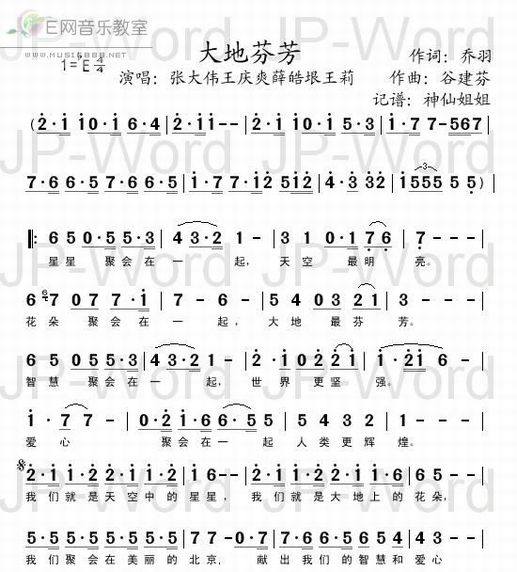 E网音乐教室
WWW.MUSIC888.NET
大地芬芳
作词：乔羽
1=♭E 4/4
演唱：张大伟王庆爽薛皓垠王莉
作曲：谷建芬
记谱：神仙姐姐
JP-Word JP-Word
(2·i i0·i 6·4 | 2·i i-- | 2·i i0·i 6·4 | 2·i i-- | i·7 7-567 |
7·6 6·5 7·6 6·5 | i·7 7·i2 5i2 | 4·3 32 | i555 5 5) |
‖: 6 5 0·5 5·3 | 4 3·2 1 - | 3 1 0·1 7 6 | 7 - - - |
星星 聚会在一 起，天空 最明 亮。
6 7 0 7 7·i | 7 - 6 - | 5 4 0 3 2 1 | 3 - - - |
花朵 聚会在一 起，大地 最芬 芳。
6 5 0 5 5·5 | 4 3·2 1 - | 2·i 0 2 2 i | i·2i 6 - |
智慧 聚会在一 起，世界 更坚 强。
i·7 7 | 0·2 i·6 6·5 5 | 5 4 3 2 | 1 - - - |
爱心 聚会在一起 人类更辉 煌。
2·i i·2 2·i i·2 | 2·i i - - | 2·i i·2 2·i i·6 | 6 5 - - |
我们就是天空中的星星，我们就是大地上的花朵，
5·5 5·5 5·5 5·5 | 7 7 -0·7 | 7·6 6·6 6·5 6·6 | 2 i - - |
我们聚会在美丽的北京，献出我们的智慧和爱心